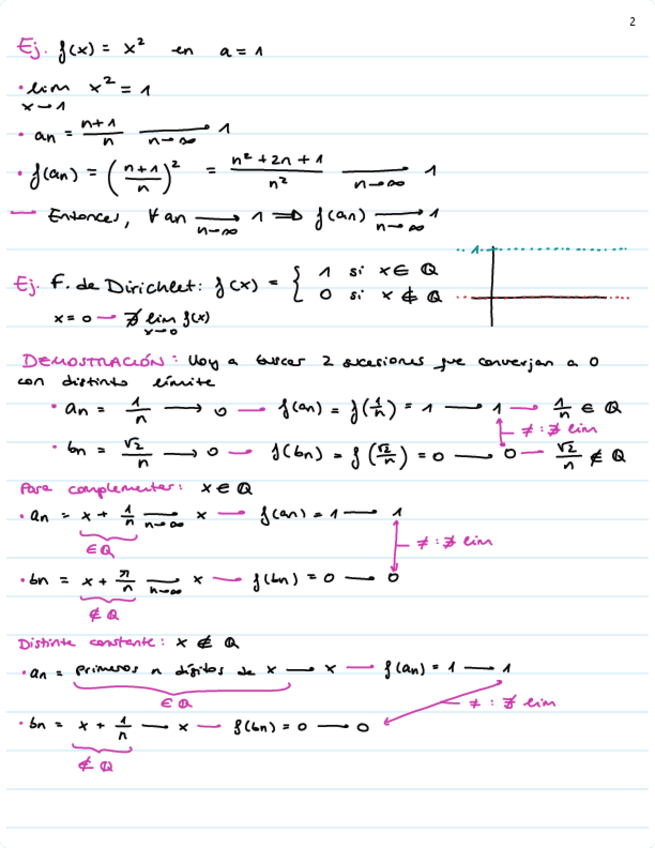 2
Ej. f(x) = x² en a = 1
· lim x² = 1
x→1
· an = (n+1)/n → 1
n→∞
· f(an) = ((n+1)/n)² = (n²+2n+1)/n² → 1
n→∞
— Entonces, ∀ an → 1 ⇒ f(an) → 1
n→∞ n→∞
1
Ej. F. de Dirichlet: f(x) = { 1 si x ∈ Q
0 si x ∉ Q
x = 0 — ∄ lim f(x)
x→0
DEMOSTRACIÓN: Voy a buscar 2 sucesiones que converjan a 0
con distinto límite
· an = 1/n → 0 — f(an) = f(1/n) = 1 — 1 — 1/n ∈ Q
≠ : ∄ lim
· bn = √2/n → 0 — f(bn) = f(√2/n) = 0 — 0 — √2/n ∉ Q
Para complementar: x ∈ Q
· an = x + 1/n → x — f(an) = 1 — 1
n→∞
∈ Q
≠ : ∄ lim
· bn = x + π/n → x — f(bn) = 0 — 0
n→∞
∉ Q
constante: x ∉ Q
· an = primeros n dígitos de x — x — f(an) = 1 — 1
∈ Q
≠ : ∄ lim
· bn = x + 1/n — x — f(bn) = 0 — 0
∉ Q